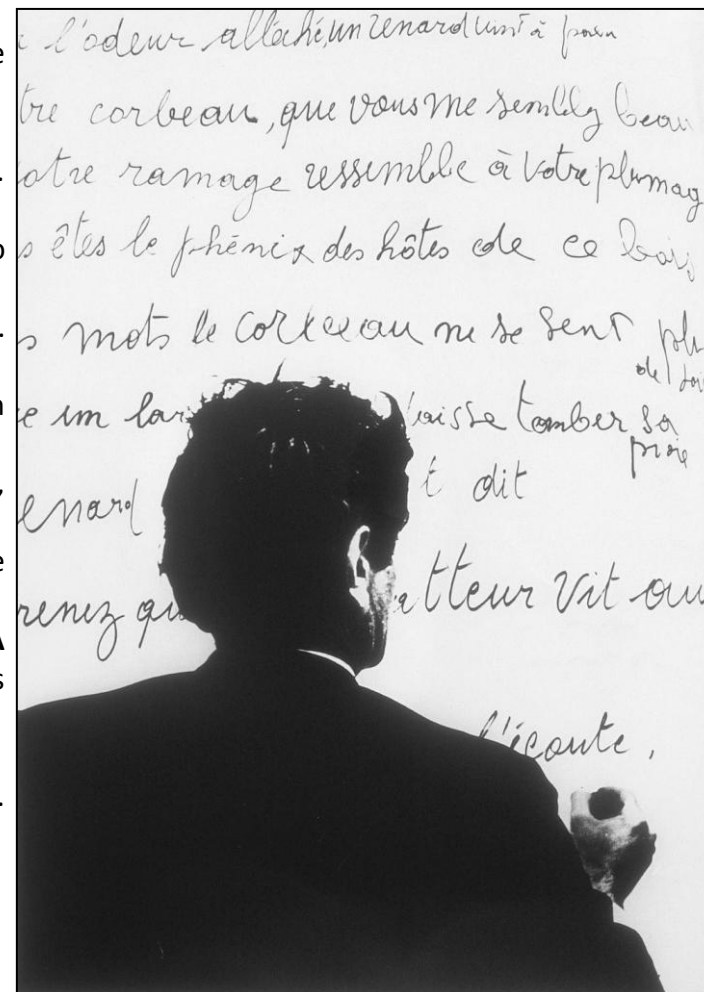 l'odeur alléché, un renard vint à
tre corbeau, que vous me semblez beau
otre ramage ressemble à votre plumag
s êtes le phénix des hôtes de ce bois
s mots le corbeau ne se sent plu
de joi
e un lar laisse tomber sa
proie
enard t dit
renez qu tteur vit au
l'écoute,